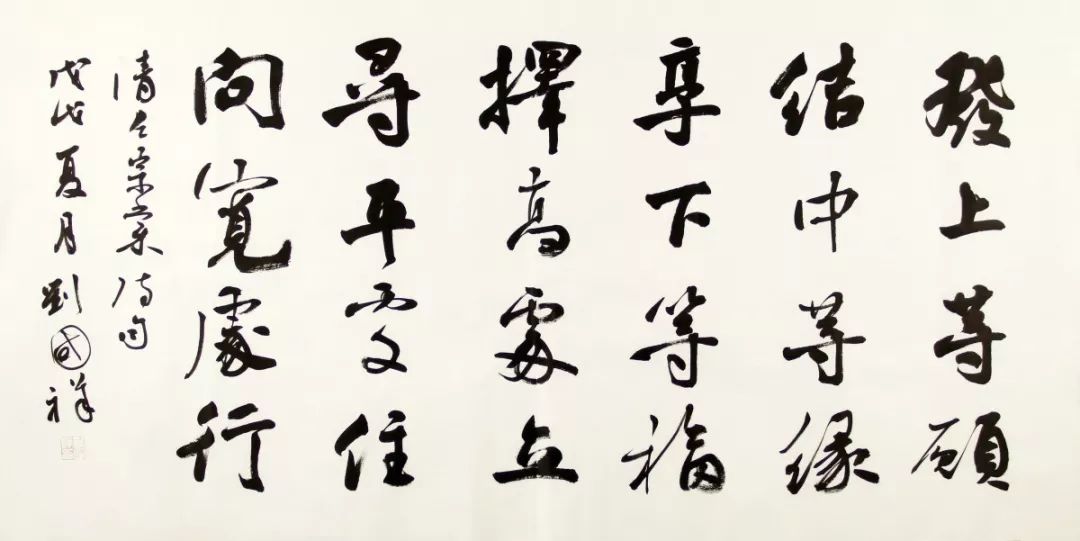 發上等願
結中等緣
享下等福
擇高處立
尋平處住
向寬處行
清左宗棠詩句
戊戌夏月劉國祥